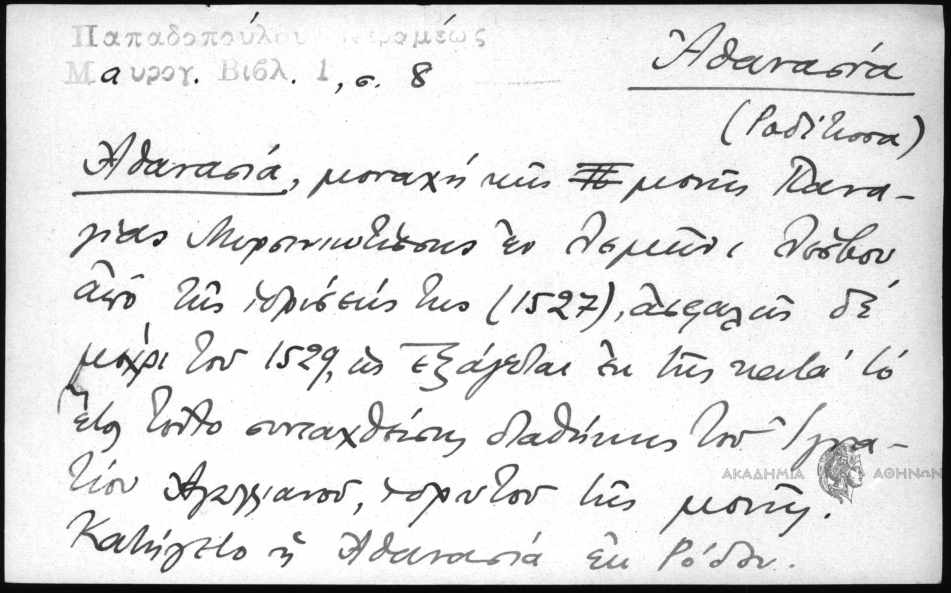 Παπαδοπούλου Κεραμέως
Μαυρογ. Βιβλ. 1, σ. 8
Ἀθανασία
(Ροδίτισσα)
Ἀθανασία, μοναχή τῆς μονῆς Πανα-
γίας Μυρσινιωτίσσης ἐν Λέσβου
ἀπό τῆς ἱδρύσεώς της (1527), ἀσφαλῶς δέ
μέχρι του 1529, ὡς ἐξάγεται ἐκ τῆς κατά τό
ἔτος τοῦτο συνταχθείσης διαθήκης τοῦ Ἰγνα-
τίου Ἀγαλλιανοῦ, ἱδρυτοῦ τῆς μονῆς.
Κατήγετο ἡ Ἀθανασία ἐκ Ρόδου.
ΑΚΑΔΗΜΙΑ ΑΘΗΝΩΝ